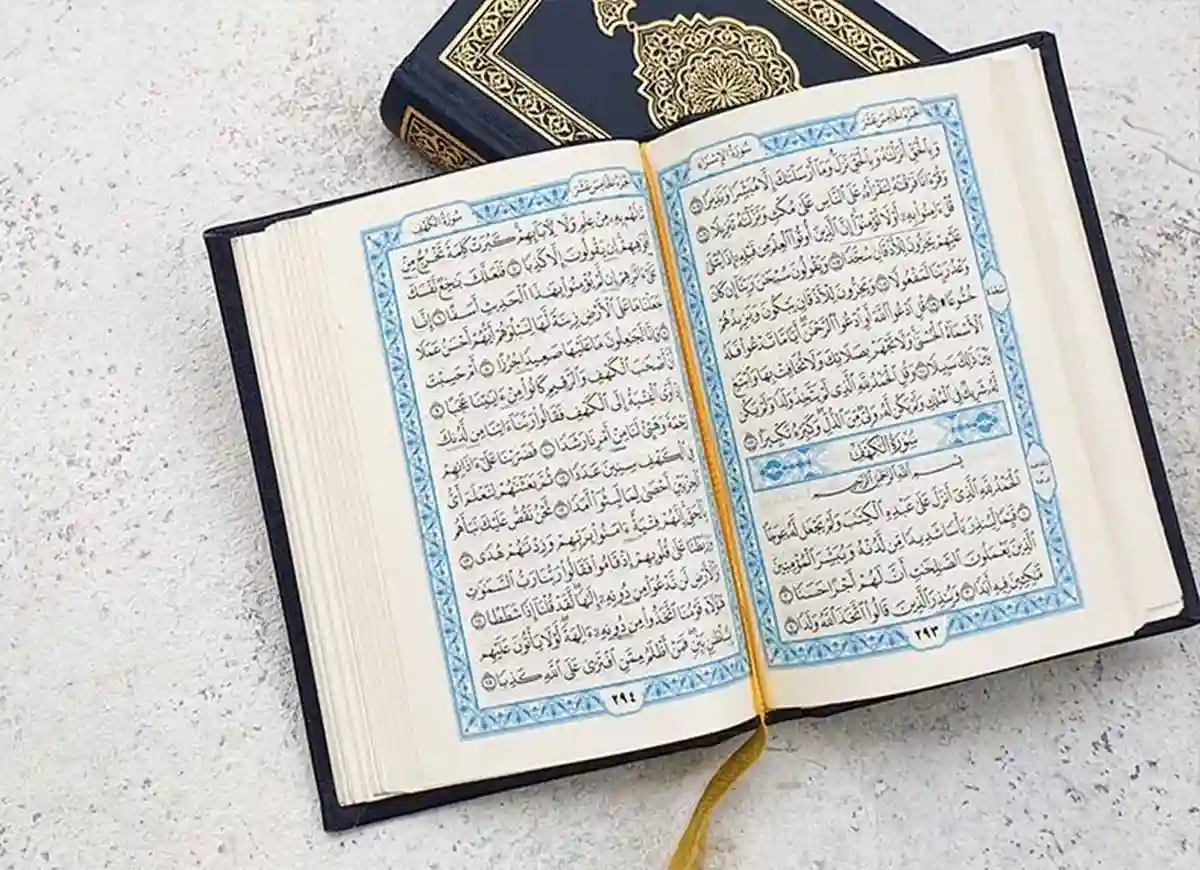 الجزء الخامس عشر
سورة الإسراء
وَبِٱلْحَقِّ أَنزَلْنَٰهُ وَبِٱلْحَقِّ نَزَلَ وَمَآ أَرْسَلْنَٰكَ إِلَّا مُبَشِّرًا وَنَذِيرًا ١٠٥
وَقُرْءَانًا فَرَقْنَٰهُ لِتَقْرَأَهُۥ عَلَى ٱلنَّاسِ عَلَىٰ مُكْثٍ وَنَزَّلْنَٰهُ تَنزِيلًا ١٠٦
قُلْ ءَامِنُوا۟ بِهِۦٓ أَوْ لَا تُؤْمِنُوٓا۟ إِنَّ ٱلَّذِينَ أُوتُوا۟ ٱلْعِلْمَ مِن قَبْلِهِۦٓ إِذَا يُتْلَىٰ
عَلَيْهِمْ يَخِرُّونَ لِلْأَذْقَانِ سُجَّدًا ١٠٧ وَيَقُولُونَ سُبْحَٰنَ رَبِّنَآ إِن كَانَ
وَعْدُ رَبِّنَا لَمَفْعُولًا ١٠٨ وَيَخِرُّونَ لِلْأَذْقَانِ يَبْكُونَ وَيَزِيدُهُمْ
خُشُوعًا ۩ ١٠٩ قُلِ ٱدْعُوا۟ ٱللَّهَ أَوِ ٱدْعُوا۟ ٱلرَّحْمَٰنَ أَيًّا مَّا تَدْعُوا۟ فَلَهُ
ٱلْأَسْمَآءُ ٱلْحُسْنَىٰ وَلَا تَجْهَرْ بِصَلَاتِكَ وَلَا تُخَافِتْ بِهَا وَٱبْتَغِ
بَيْنَ ذَٰلِكَ سَبِيلًا ١١٠ وَقُلِ ٱلْحَمْدُ لِلَّهِ ٱلَّذِى لَمْ يَتَّخِذْ وَلَدًا وَلَمْ يَكُن
لَّهُۥ شَرِيكٌ فِى ٱلْمُلْكِ وَلَمْ يَكُن لَّهُۥ وَلِىٌّ مِّنَ ٱلذُّلِّ وَكَبِّرْهُ تَكْبِيرًا ١١١
سُورَةُ الكَهْفِ
بِسْمِ ٱللَّهِ ٱلرَّحْمَٰنِ ٱلرَّحِيمِ
ٱلْحَمْدُ لِلَّهِ ٱلَّذِىٓ أَنزَلَ عَلَىٰ عَبْدِهِ ٱلْكِتَٰبَ وَلَمْ يَجْعَل لَّهُۥ عِوَجَا
١ قَيِّمًا لِّيُنذِرَ بَأْسًا شَدِيدًا مِّن لَّدُنْهُ وَيُبَشِّرَ ٱلْمُؤْمِنِينَ
ٱلَّذِينَ يَعْمَلُونَ ٱلصَّٰلِحَٰتِ أَنَّ لَهُمْ أَجْرًا حَسَنًا ٢
مَّٰكِثِينَ فِيهِ أَبَدًا ٣ وَيُنذِرَ ٱلَّذِينَ قَالُوا۟ ٱتَّخَذَ ٱللَّهُ وَلَدًا ٤
سجدة
٢٩٣
الجزء الخامس عشر
سورة الكهف
مَّا لَهُم بِهِۦ مِنْ عِلْمٍ وَلَا لِـَٔابَآئِهِمْ كَبُرَتْ كَلِمَةً تَخْرُجُ مِنْ
أَفْوَٰهِهِمْ إِن يَقُولُونَ إِلَّا كَذِبًا ٥ فَلَعَلَّكَ بَٰخِعٌ نَّفْسَكَ
عَلَىٰٓ ءَاثَٰرِهِمْ إِن لَّمْ يُؤْمِنُوا۟ بِهَٰذَا ٱلْحَدِيثِ أَسَفًا ٦ إِنَّا
جَعَلْنَا مَا عَلَى ٱلْأَرْضِ زِينَةً لَّهَا لِنَبْلُوَهُمْ أَيُّهُمْ أَحْسَنُ عَمَلًا
٧ وَإِنَّا لَجَٰعِلُونَ مَا عَلَيْهَا صَعِيدًا جُرُزًا ٨ أَمْ حَسِبْتَ
أَنَّ أَصْحَٰبَ ٱلْكَهْفِ وَٱلرَّقِيمِ كَانُوا۟ مِنْ ءَايَٰتِنَا عَجَبًا ٩
إِذْ أَوَى ٱلْفِتْيَةُ إِلَى ٱلْكَهْفِ فَقَالُوا۟ رَبَّنَآ ءَاتِنَا مِن لَّدُنكَ
رَحْمَةً وَهَيِّئْ لَنَا مِنْ أَمْرِنَا رَشَدًا ١٠ فَضَرَبْنَا عَلَىٰٓ ءَاذَانِهِمْ
فِى ٱلْكَهْفِ سِنِينَ عَدَدًا ١١ ثُمَّ بَعَثْنَٰهُمْ لِنَعْلَمَ أَىُّ
ٱلْحِزْبَيْنِ أَحْصَىٰ لِمَا لَبِثُوٓا۟ أَمَدًا ١٢ نَّحْنُ نَقُصُّ عَلَيْكَ نَبَأَهُم
بِٱلْحَقِّ إِنَّهُمْ فِتْيَةٌ ءَامَنُوا۟ بِرَبِّهِمْ وَزِدْنَٰهُمْ هُدًى ١٣
وَرَبَطْنَا عَلَىٰ قُلُوبِهِمْ إِذْ قَامُوا۟ فَقَالُوا۟ رَبُّنَا رَبُّ ٱلسَّمَٰوَٰتِ
وَٱلْأَرْضِ لَن نَّدْعُوَا۟ مِن دُونِهِۦٓ إِلَٰهًا لَّقَدْ قُلْنَآ إِذًا شَطَطًا ١٤
هَٰٓؤُلَآءِ قَوْمُنَا ٱتَّخَذُوا۟ مِن دُونِهِۦٓ ءَالِهَةً لَّوْلَا يَأْتُونَ عَلَيْهِم
بِسُلْطَٰنٍۭ بَيِّنٍ فَمَنْ أَظْلَمُ مِمَّنِ ٱفْتَرَىٰ عَلَى ٱللَّهِ كَذِبًا ١٥
٢٩٤